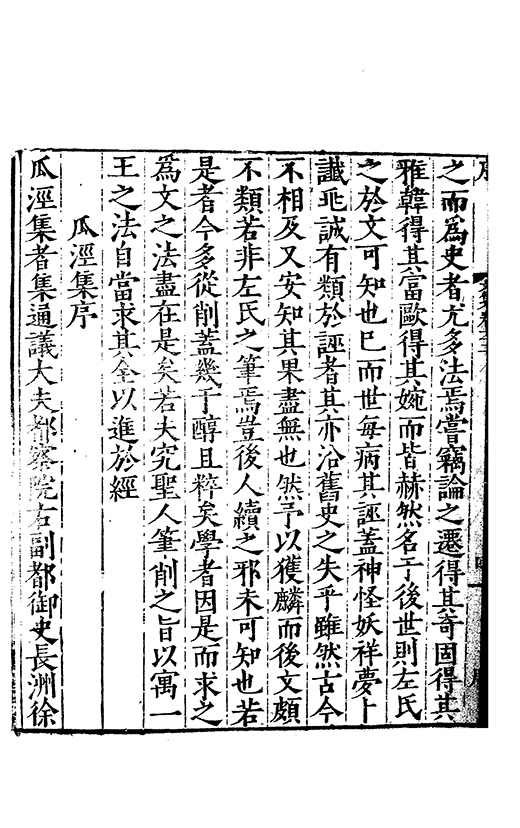 之而為史者尤多法焉嘗竊論之遷得其竒固得其
雅韓得其富歐得其婉而皆赫然名于後世則左氏
之於文可知也已而世每病其誣蓋神怪妖祥夢卜
讖兆誠有類於誣者其亦沿舊史之失乎雖然古今
不相及又安知其果盡無也然予以獲麟而後文頗
不類若非左氏之筆焉豈後人續之邪未可知也若
是者今多從削蓋幾于醇且粹矣學者因是而求之
為文之法盡在是矣若夫究聖人筆削之旨以寓一
王之法自當求其全以進於經
瓜涇集序
瓜涇集者集通議大夫都察院右副都御史長洲徐